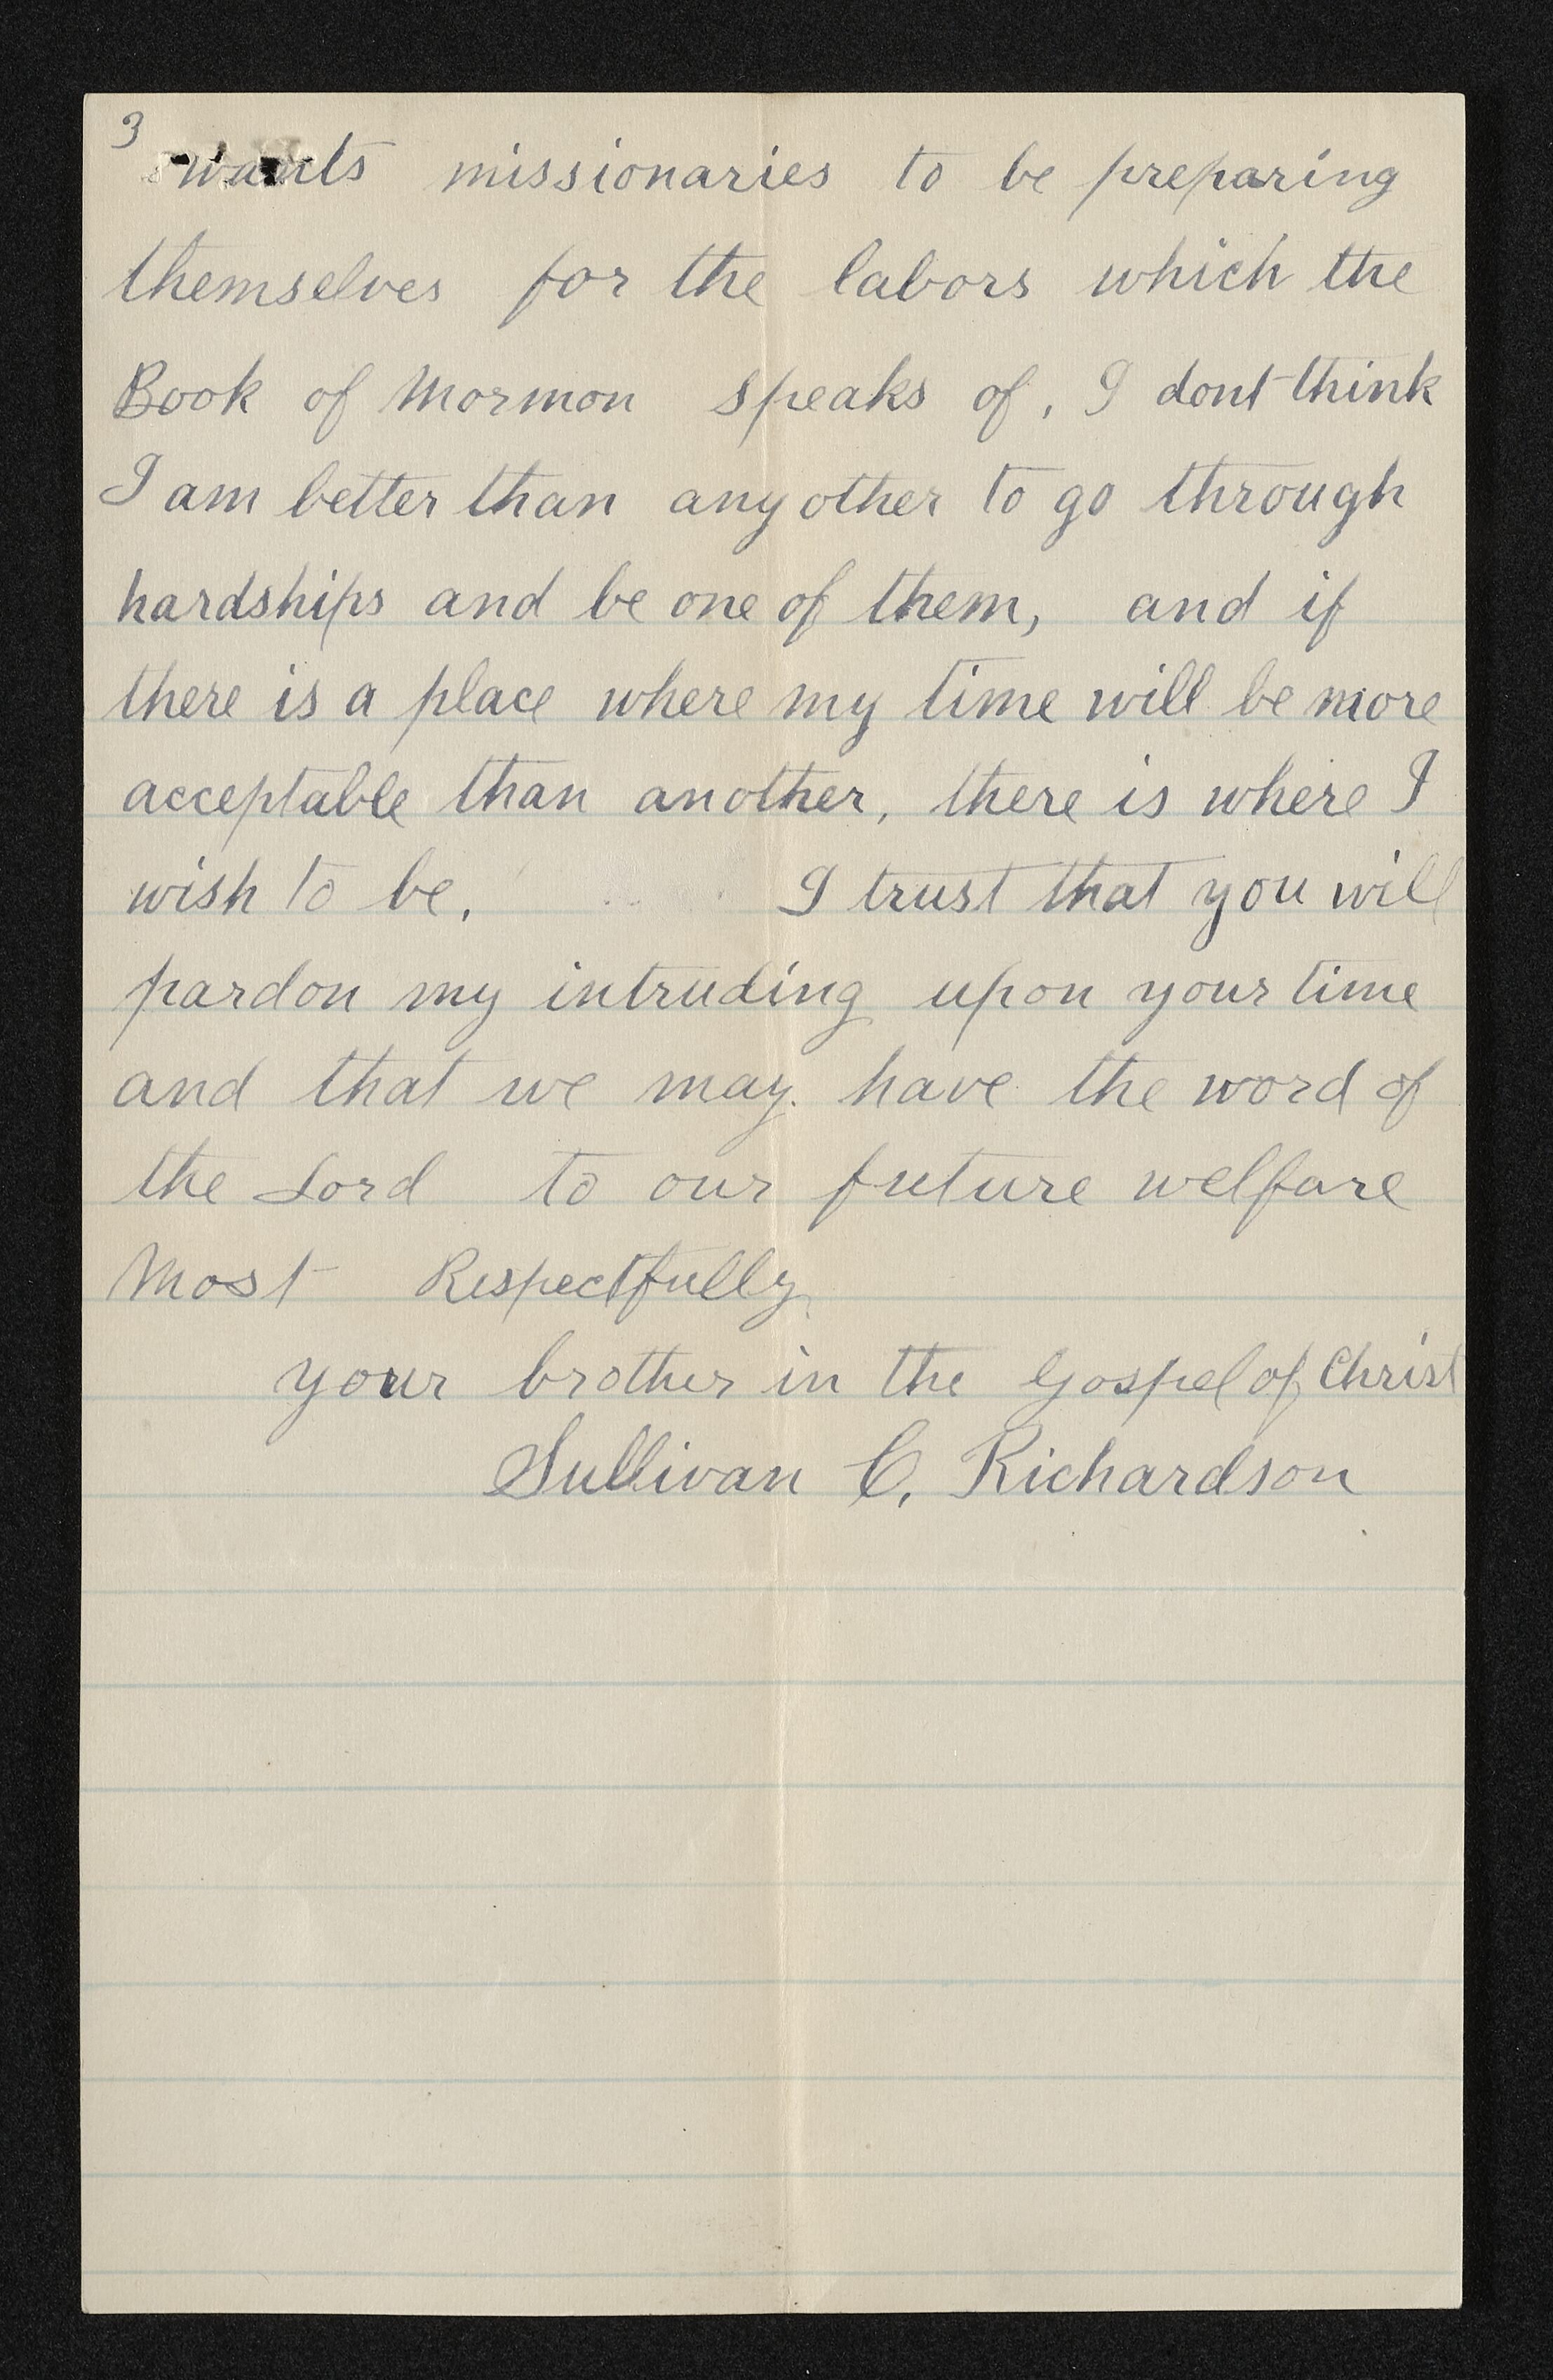 3
wants missionaries to be preparing
themselves for the labors which the
Book of Mormon speaks of, I dont think
I am better than any other to go through
hardships and be one of them, and if
there is a place where my time will be more
acceptable than another, there is where I
wish to be. I trust that you will
pardon my intruding upon your time
and that we may have the word of
the Lord to our future welfare
Most Respectfully
your brother in the Gospel of Christ
Sullivan C. Richardson